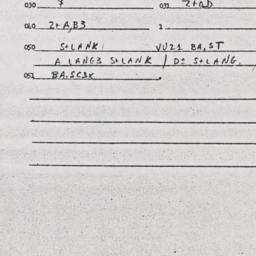 030 7 032 Z+AD
040 Z+A,B3 2
050 S+LANK VU21 BA,ST
A LANG3 S+LANK / D= S+LANG.
052 BA.SC3X